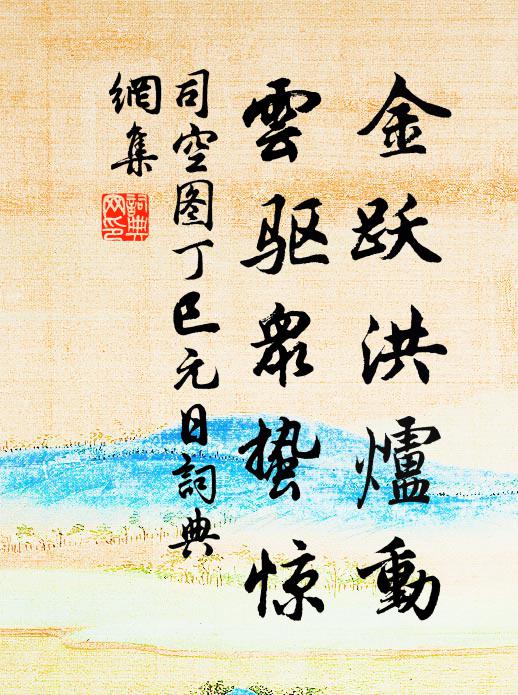 金跃洪爐動
雲驱眾蛰惊
司空图丁巳元日詞典
網集
詞典
网印